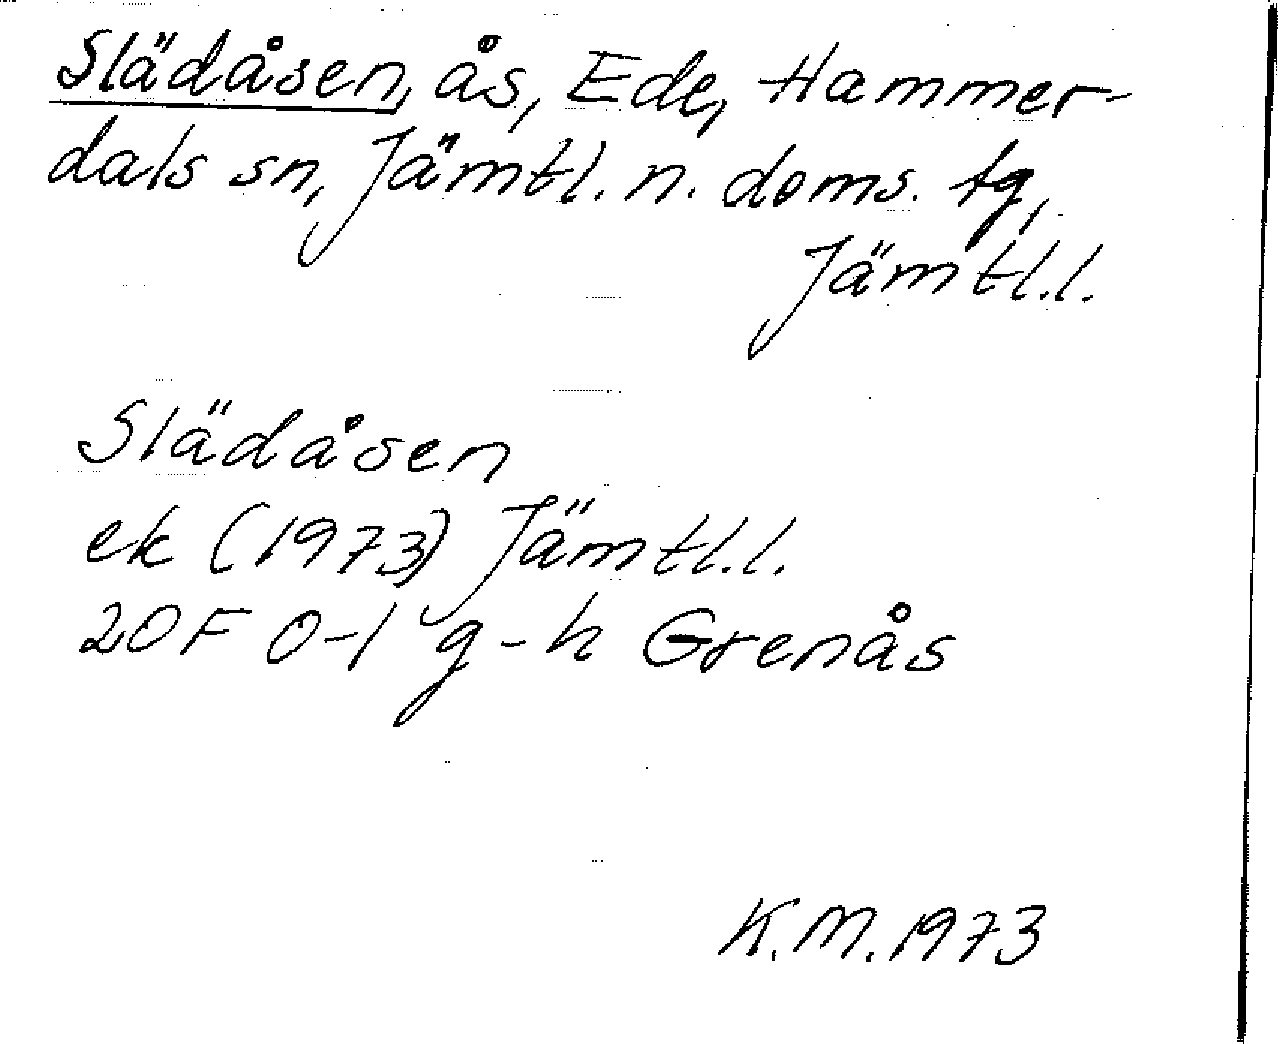 Slädåsen, ås, Ede, Hammer-
dals sn, Jämtl. n. doms. tg,
Jämtl.l.
Slädåsen
ek (1973) Jämtl.l.
20F 0-1 g-h Grenås
K.M. 1973